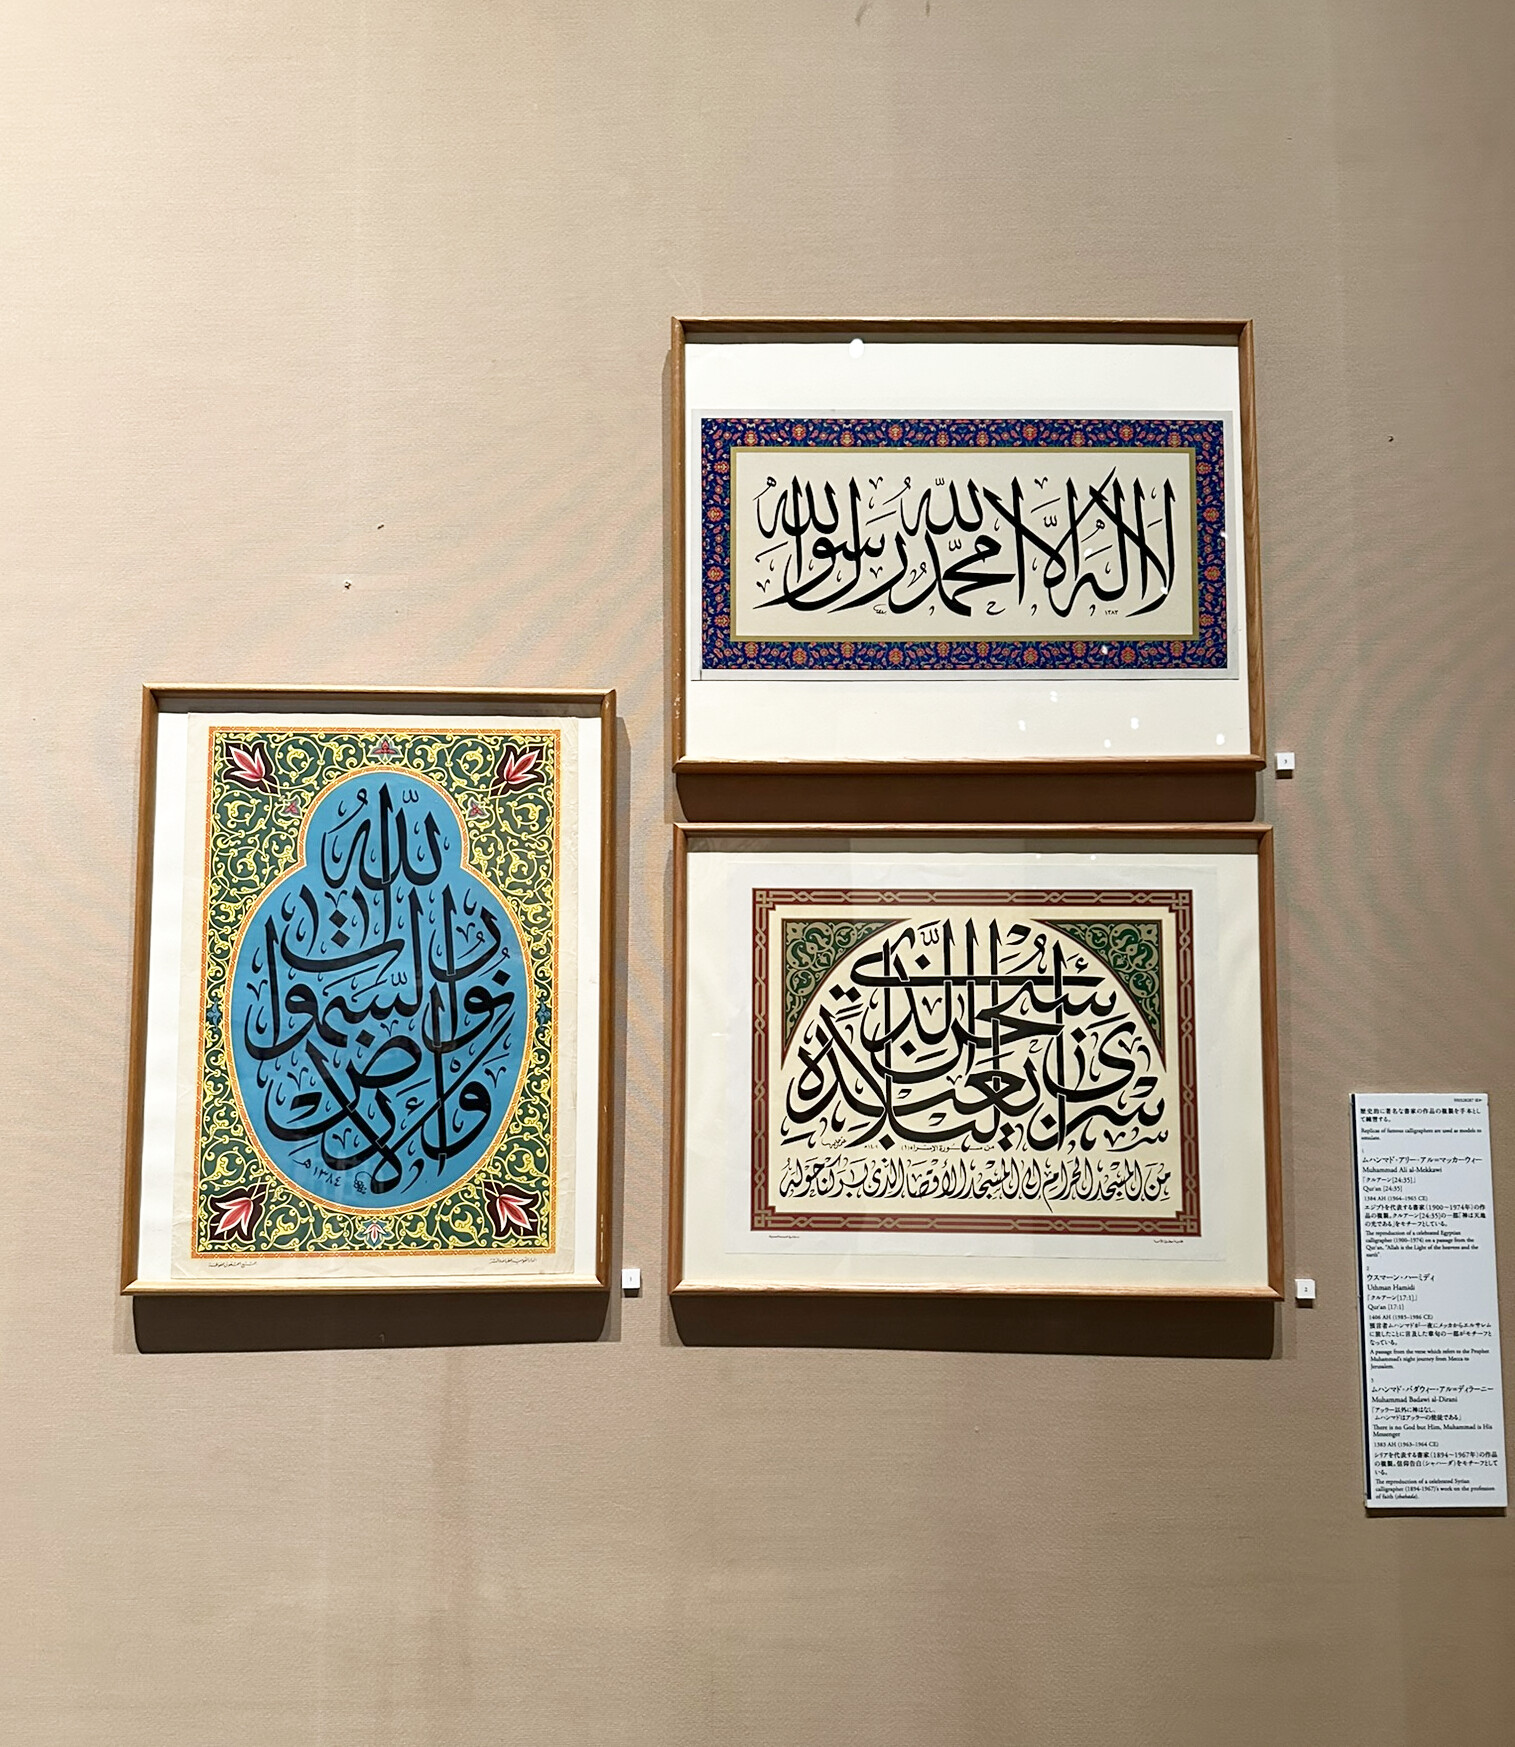 الله نور السموات والأرض
١٣٨٤ هـ
1
لا إله إلا الله محمد رسول الله
١٣٨٣
3
سبحن الذى أسرى بعبده ليلا
من سورة الإسراء (١)
من المسجد الحرام إلى المسجد الأقصا الذى بركنا حوله
2
歴史的に著名な書家の作品の複製を手本とし
て練習する。
Replicas of famous calligraphers are used as models to
emulate.
1
ムハンマド・アリー・アル=マッカーウィー
Muhammad Ali al-Mekkawi
『クルアーン[24:35]』
Qur'an [24:35]
1384 AH (1964–1965 CE)
エジプトを代表する書家(1900〜1974年)の作
品の複製。クルアーン[24:35]の一部「神は天地
の光である」をモチーフとしている。
The reproduction of a celebrated Egyptian
calligrapher (1900–1974) on a passage from the
Qur'an, "Allah is the Light of the heavens and the
earth"
2
ウスマーン・ハーミディ
Uthman Hamidi
『クルアーン[17:1]』
Qur'an [17:1]
1406 AH (1985–1986 CE)
預言者ムハンマドが一夜にメッカからエルサレム
に旅したことに言及した章句の一部がモチーフと
なっている。
A passage from the verse which refers to the Prophet
Muhammad's night journey from Mecca to
Jerusalem.
3
ムハンマド・バダウィー・アル=ディラーニー
Muhammad Badawi al-Dirani
「アッラー以外に神はなし、
ムハンマドはアッラーの使徒である」
There is no God but Him, Muhammad is His
Messenger
1383 AH (1963–1964 CE)
シリアを代表する書家(1894〜1967年)の作品
の複製。信仰告白(シャハーダ)をモチーフとして
いる。
The reproduction of a celebrated Syrian
calligrapher (1894-1967)'s work on the profession
of faith (shahada).